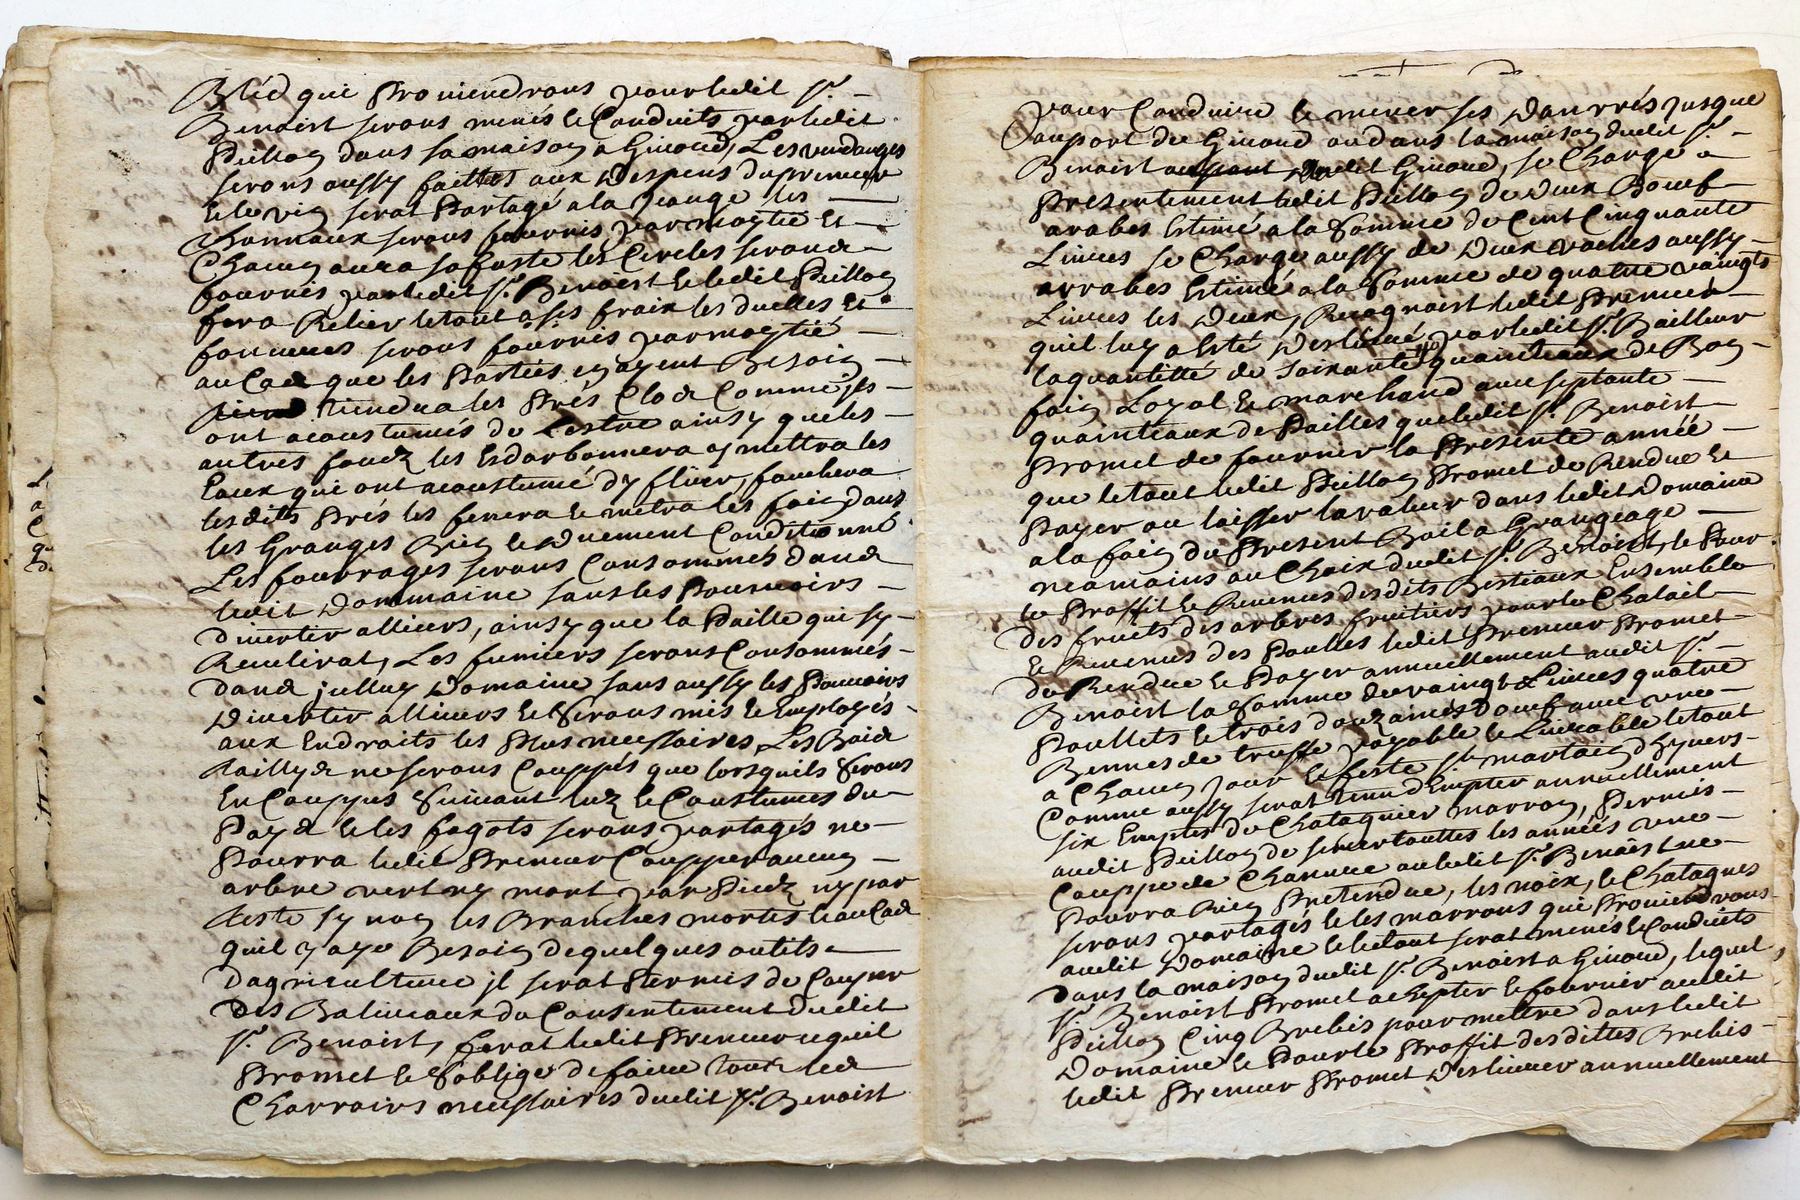 Bléd qui Proviendrons pour ledit Sr.
Benoist serons menés & Conduits par ledit
Peillon dans sa maison a Givord, Les vendanges
serons aussy faittes aux Despens du preneur
& le vin serat Partagé a la jauge les
Thonnaux serons fournis par moytié Et
Chacun aura sa fuste les Cercles seront
fournis par ledit Sr. Benoist & ledit Peillon
fera Relier le tout a ses fraix les duelles Et
seront fournis par moytié
au Cas que les Parties en ayent Besoin
tiendra les Prés Clos Comme ils
ont acoustumés de L'estre ainsy que les
autres fondz les Esdarbonnera y mettra les
Eaux qui ont acoustumé d'y fluer, fauchera
lesdits Prés les fenera & metra les foin dans
les Granges Bien & Duement Conditionné
Les fourrages serons Consommés dans
ledit Dommaine sans les Pouvoirs
Divertir allieurs, ainsy que la Paille qui sy
Recülirat, Les fumiers serons Consommés
dans jcelluy Domaine sans aussy les Pouvoirs
Divertir allieurs & Serons mis & Employés
aux Endroits les Plus necessaires, Les Bois
taillys ne serons Couppés que lorsquils Serons
En Couppes Suivant luz & Coustumes du
Pays & les fagots serons partagés ne
Pourra ledit Preneur Coupper aucun
arbre vert ny mort par Piedz ny par
teste sy non les Branches mortes & au Cas
quil y aye Besoin de quelques outils
Dagriculture jl serat Permis de Couper
Des Baliveaux du Consentement dudit
Sr. Benoist, ferat ledit Preneur cquil
Promet & S'oblige de faire tous les
Charrois necessaires dudit Sr. Benoist
pour Conduire & mener ses Danrrés jusque
au port de Givord ou dans la maison dudit Sr.
Benoist audit Givord, se Charge a
Presentement ledit Peillon de Deux Boeuf
arabes Estimé a la Somme de Cent Cinquante
Livres se Charge aussy de Deux vaches aussy
arrabes Estimé a la Somme de quatre vaingts
Livres les Deux, Recognoist ledit Preneur
quil luy a Esté Deslivré par ledit Sr. Bailleur
la quantitté de Soixante quainteaux de Bon
foin Loyal & marchand avec septante
quainteaux de Pailles que ledit Sr. Benoist
Promet de fournir la Presente année
que le tout ledit Peillon Promet de Rendre &
Payer ou laisser la valeur dans ledit Domaine
a la fain du Present Bail a Grangeage
neamains au Choix dudit Sr. Benoist, & Pour
le Proffit & Revenus desdits Bestiaux Ensemble
des fruits des arbres fruitiers pour le Chalail
& Revenus des Poulles ledit Preneur Promet
de Rendre & Payer annuellement audit Sr.
Benoist la Somme de vaingt Livres quatre
Poullets & trois douzaines d'oeuf avec une
Bennes de truffe payable & Livrable le tout
a Chacun jour & feste St. martain d'hyvers
Comme aussy serat tenu d'Empter annuellement
six Emptes de Chataignier marron, Permis
audit Peillon de semer touttes les années une
Couppe de Chanvre ou ledit Sr. Benoist ne
Pourra Rien Pretendre, les noix, & Chatagnes
serons partagés & les marrons qui Proviendrons
audit Domaine & le tout serat menés & Conduits
dans la maison dudit Sr. Benoist a Givord, lequel
Sr. Benoist Promet achepter & fournir audit
Peillon Cinq Brebis pour mettre dans ledit
Domaine & Pour le Proffit desdittes Brebis
ledit Preneur Promet Deslivrer annuellement